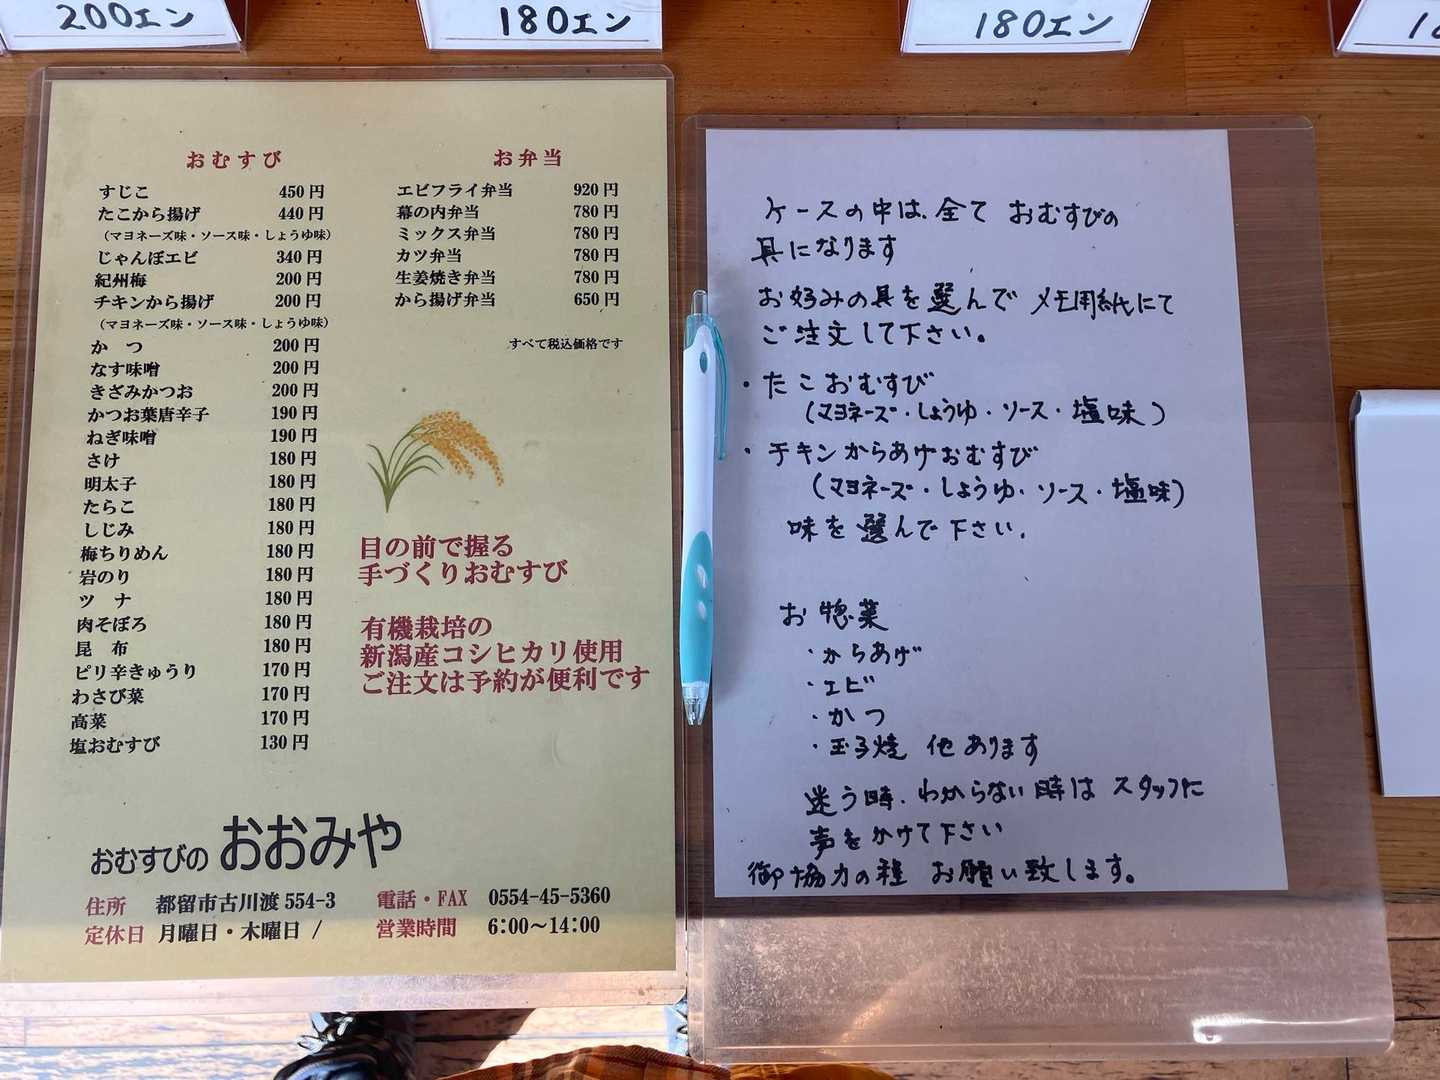 200エン
180エン
180エン
おむすび
すじこ 450円
たこから揚げ 440円
（マヨネーズ味・ソース味・しょうゆ味）
じゃんぼエビ 340円
紀州梅 200円
チキンから揚げ 200円
（マヨネーズ味・ソース味・しょうゆ味）
かつ 200円
なす味噌 200円
きざみかつお 200円
かつお葉唐辛子 190円
ねぎ味噌 190円
さけ 180円
明太子 180円
たらこ 180円
しじみ 180円
梅ちりめん 180円
岩のり 180円
ツナ 180円
肉そぼろ 180円
昆布 180円
ピリ辛きゅうり 170円
わさび菜 170円
高菜 170円
塩おむすび 130円
お弁当
エビフライ弁当 920円
幕の内弁当 780円
ミックス弁当 780円
カツ弁当 780円
生姜焼き弁当 780円
から揚げ弁当 650円
すべて税込価格です
目の前で握る
手づくりおむすび
有機栽培の
新潟産コシヒカリ使用
ご注文は予約が便利です
おむすびの おおみや
住所 都留市古川渡554-3 電話・FAX 0554-45-5360
定休日 月曜日・木曜日 / 営業時間 6:00〜14:00
ケースの中は、全て おむすびの
具になります
お好みの具を選んで メモ用紙にて
ご注文して下さい。
・たこおむすび
（マヨネーズ・しょうゆ・ソース・塩味）
・チキンからあげおむすび
（マヨネーズ・しょうゆ・ソース・塩味）
味を選んで下さい.
お惣菜
・からあげ
・エビ
・かつ
・玉子焼 他あります
迷う時、わからない時は スタッフに
声をかけて下さい
御協力の程 お願い致します。